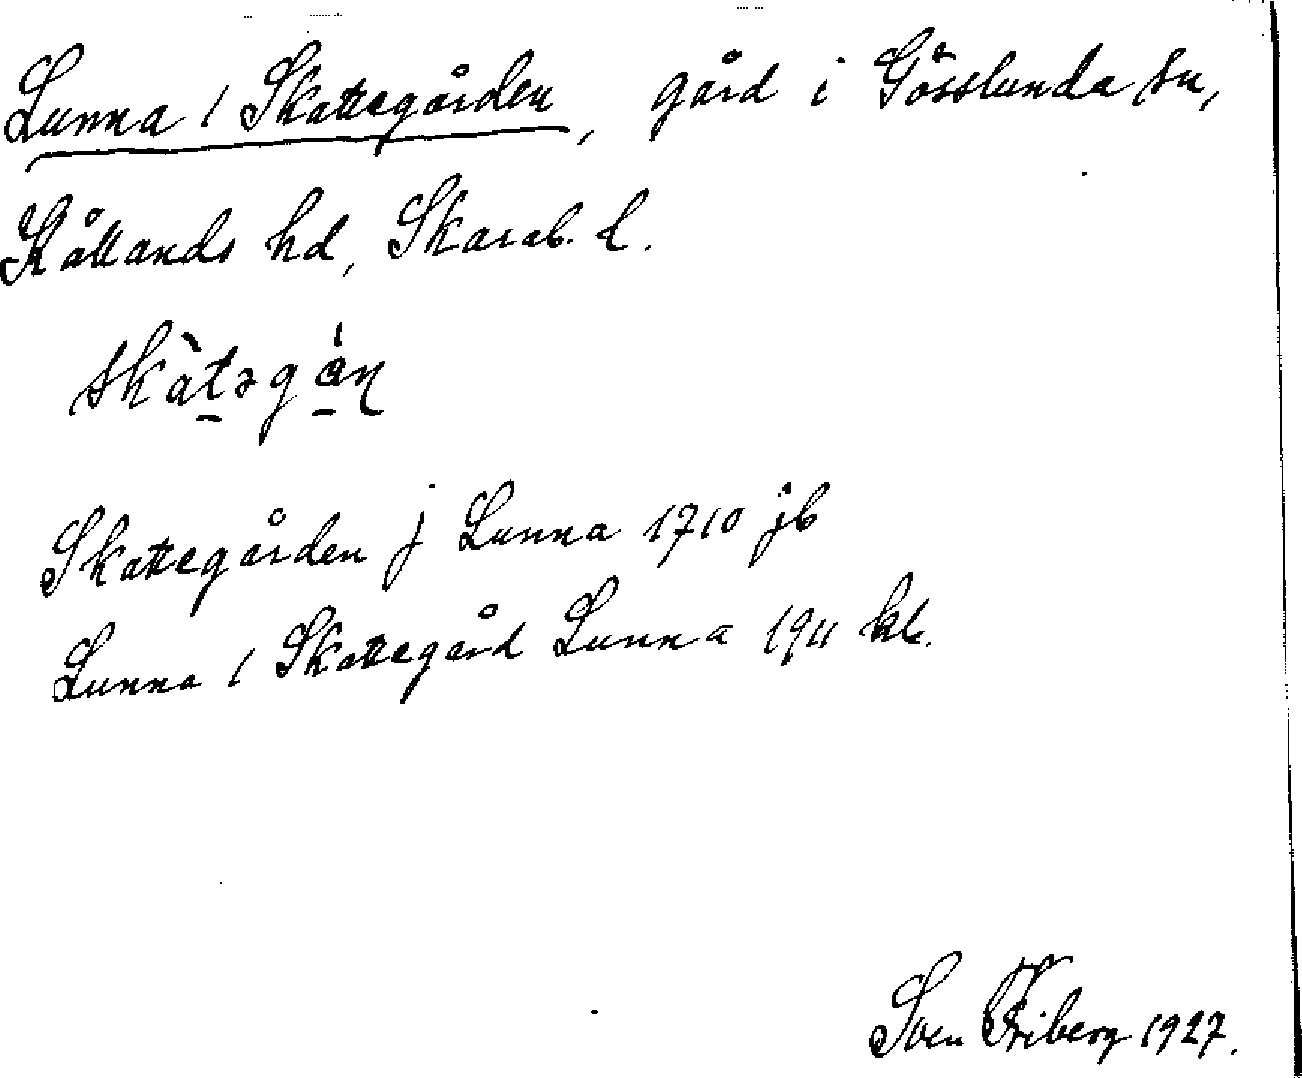 Lunna / Skattegården, gård i Gösslunda sn,
Kållands hd, Skarab. l.
skàtəgán
Skattegården j Lunna 1710 jb
Lunna / Skattegård Lunna 1911 kb.
Sven Friberg 1927.